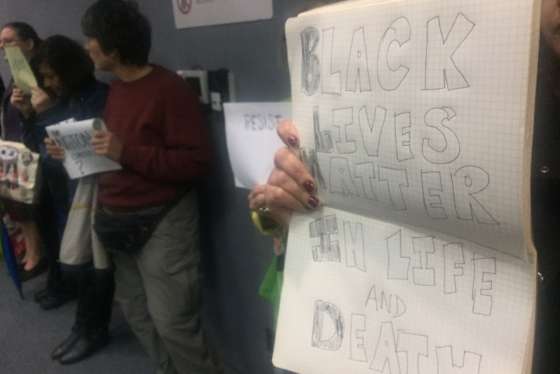 BLACK
LIVES
MATTER
IN LIFE
AND
DEATH
RESIST